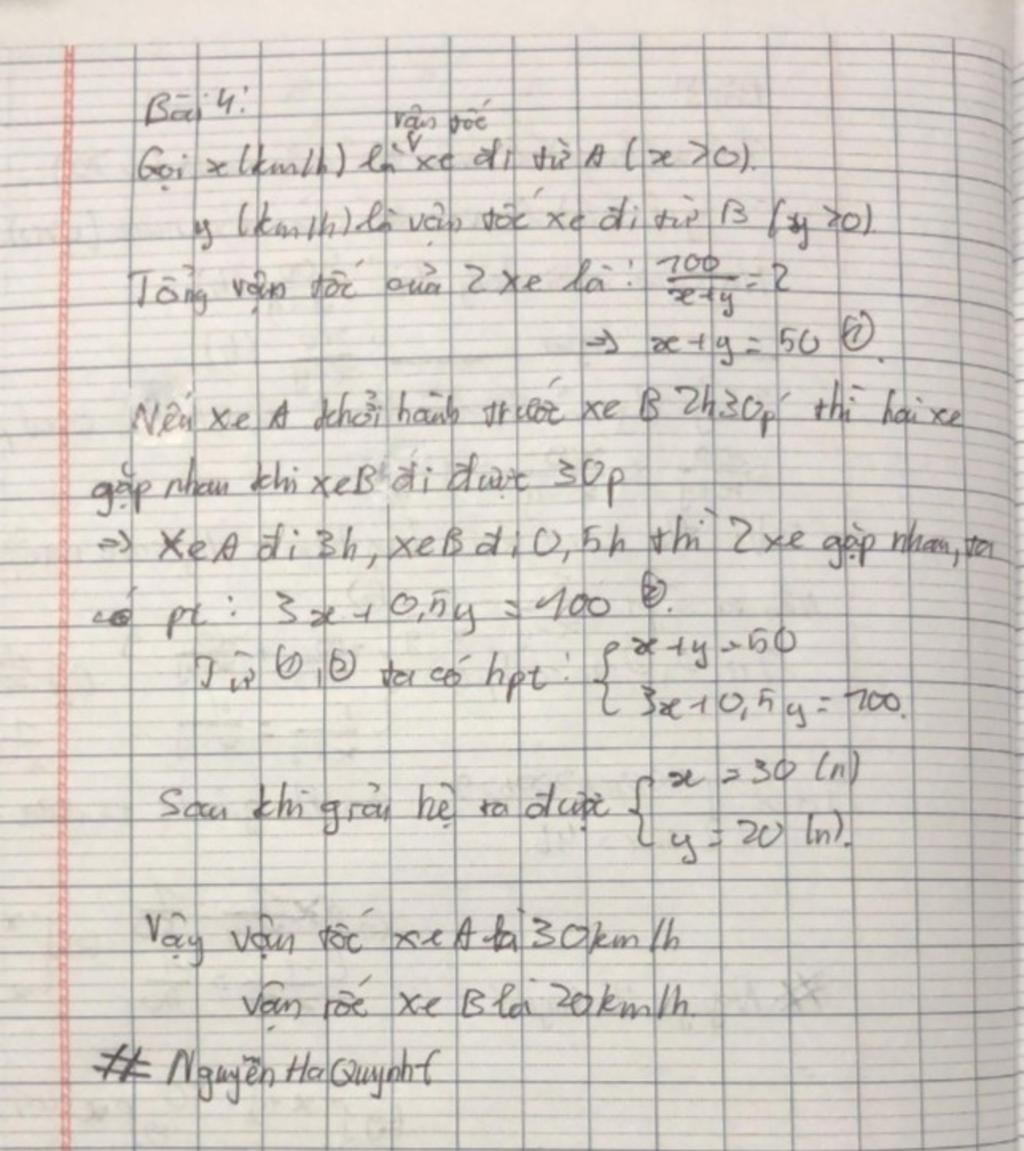 Bài 4:
vận tốc
Gọi x (km/h) là v xe đi từ A (x > 0).
y (km/h) là vận tốc xe đi từ B (y > 0)
Tổng vận tốc của 2 xe là: 100/(x+y) = 2
=> x + y = 50 ①.
Nếu xe A khởi hành trước xe B 2h30p thì hai xe
gặp nhau khi xe B đi được 30p
=> Xe A đi 3h, xe B đi 0,5h thì 2 xe gặp nhau, ta
có pt: 3x + 0,5y = 100 ②.
Từ ①, ② ta có hpt: { x + y = 50
3x + 0,5y = 100.
Sau khi giải hệ ra được { x = 30 (n)
y = 20 (n).
Vậy vận tốc xe A là 30km/h
vận tốc xe B là 20km/h.
# Nguyễn Ha Quynht